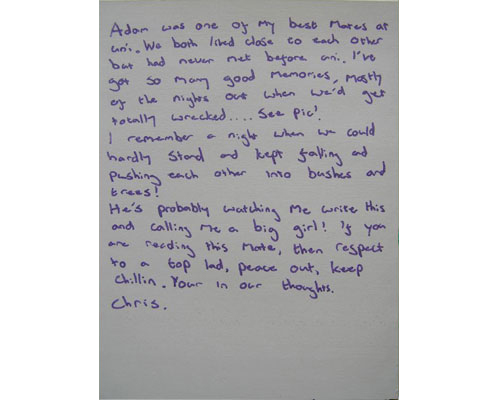 Adam was one of my best mates at
uni. We both lived close to each other
but had never met before uni. I've
got so many good memories, mostly
of the nights out when we'd get
totally wrecked.... See pic!
I remember a night when we could
hardly stand and kept falling and
pushing each other into bushes and
trees!
He's probably watching me write this
and calling me a big girl! If you
are reading this mate, then respect
to a top lad, peace out, keep
chillin. Your in our thoughts.
Chris.